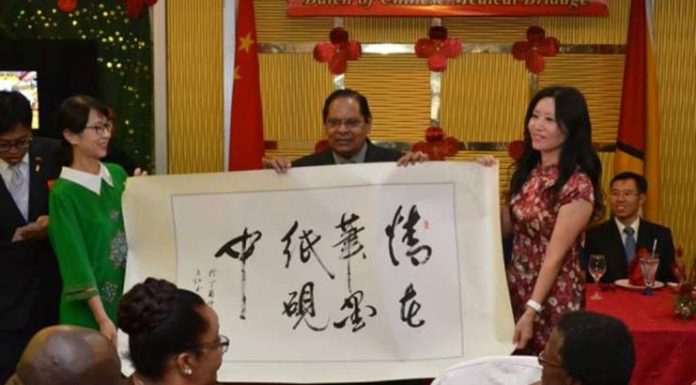 Batch of Chinese Medical Brigade
情在
筆墨
紙硯
中